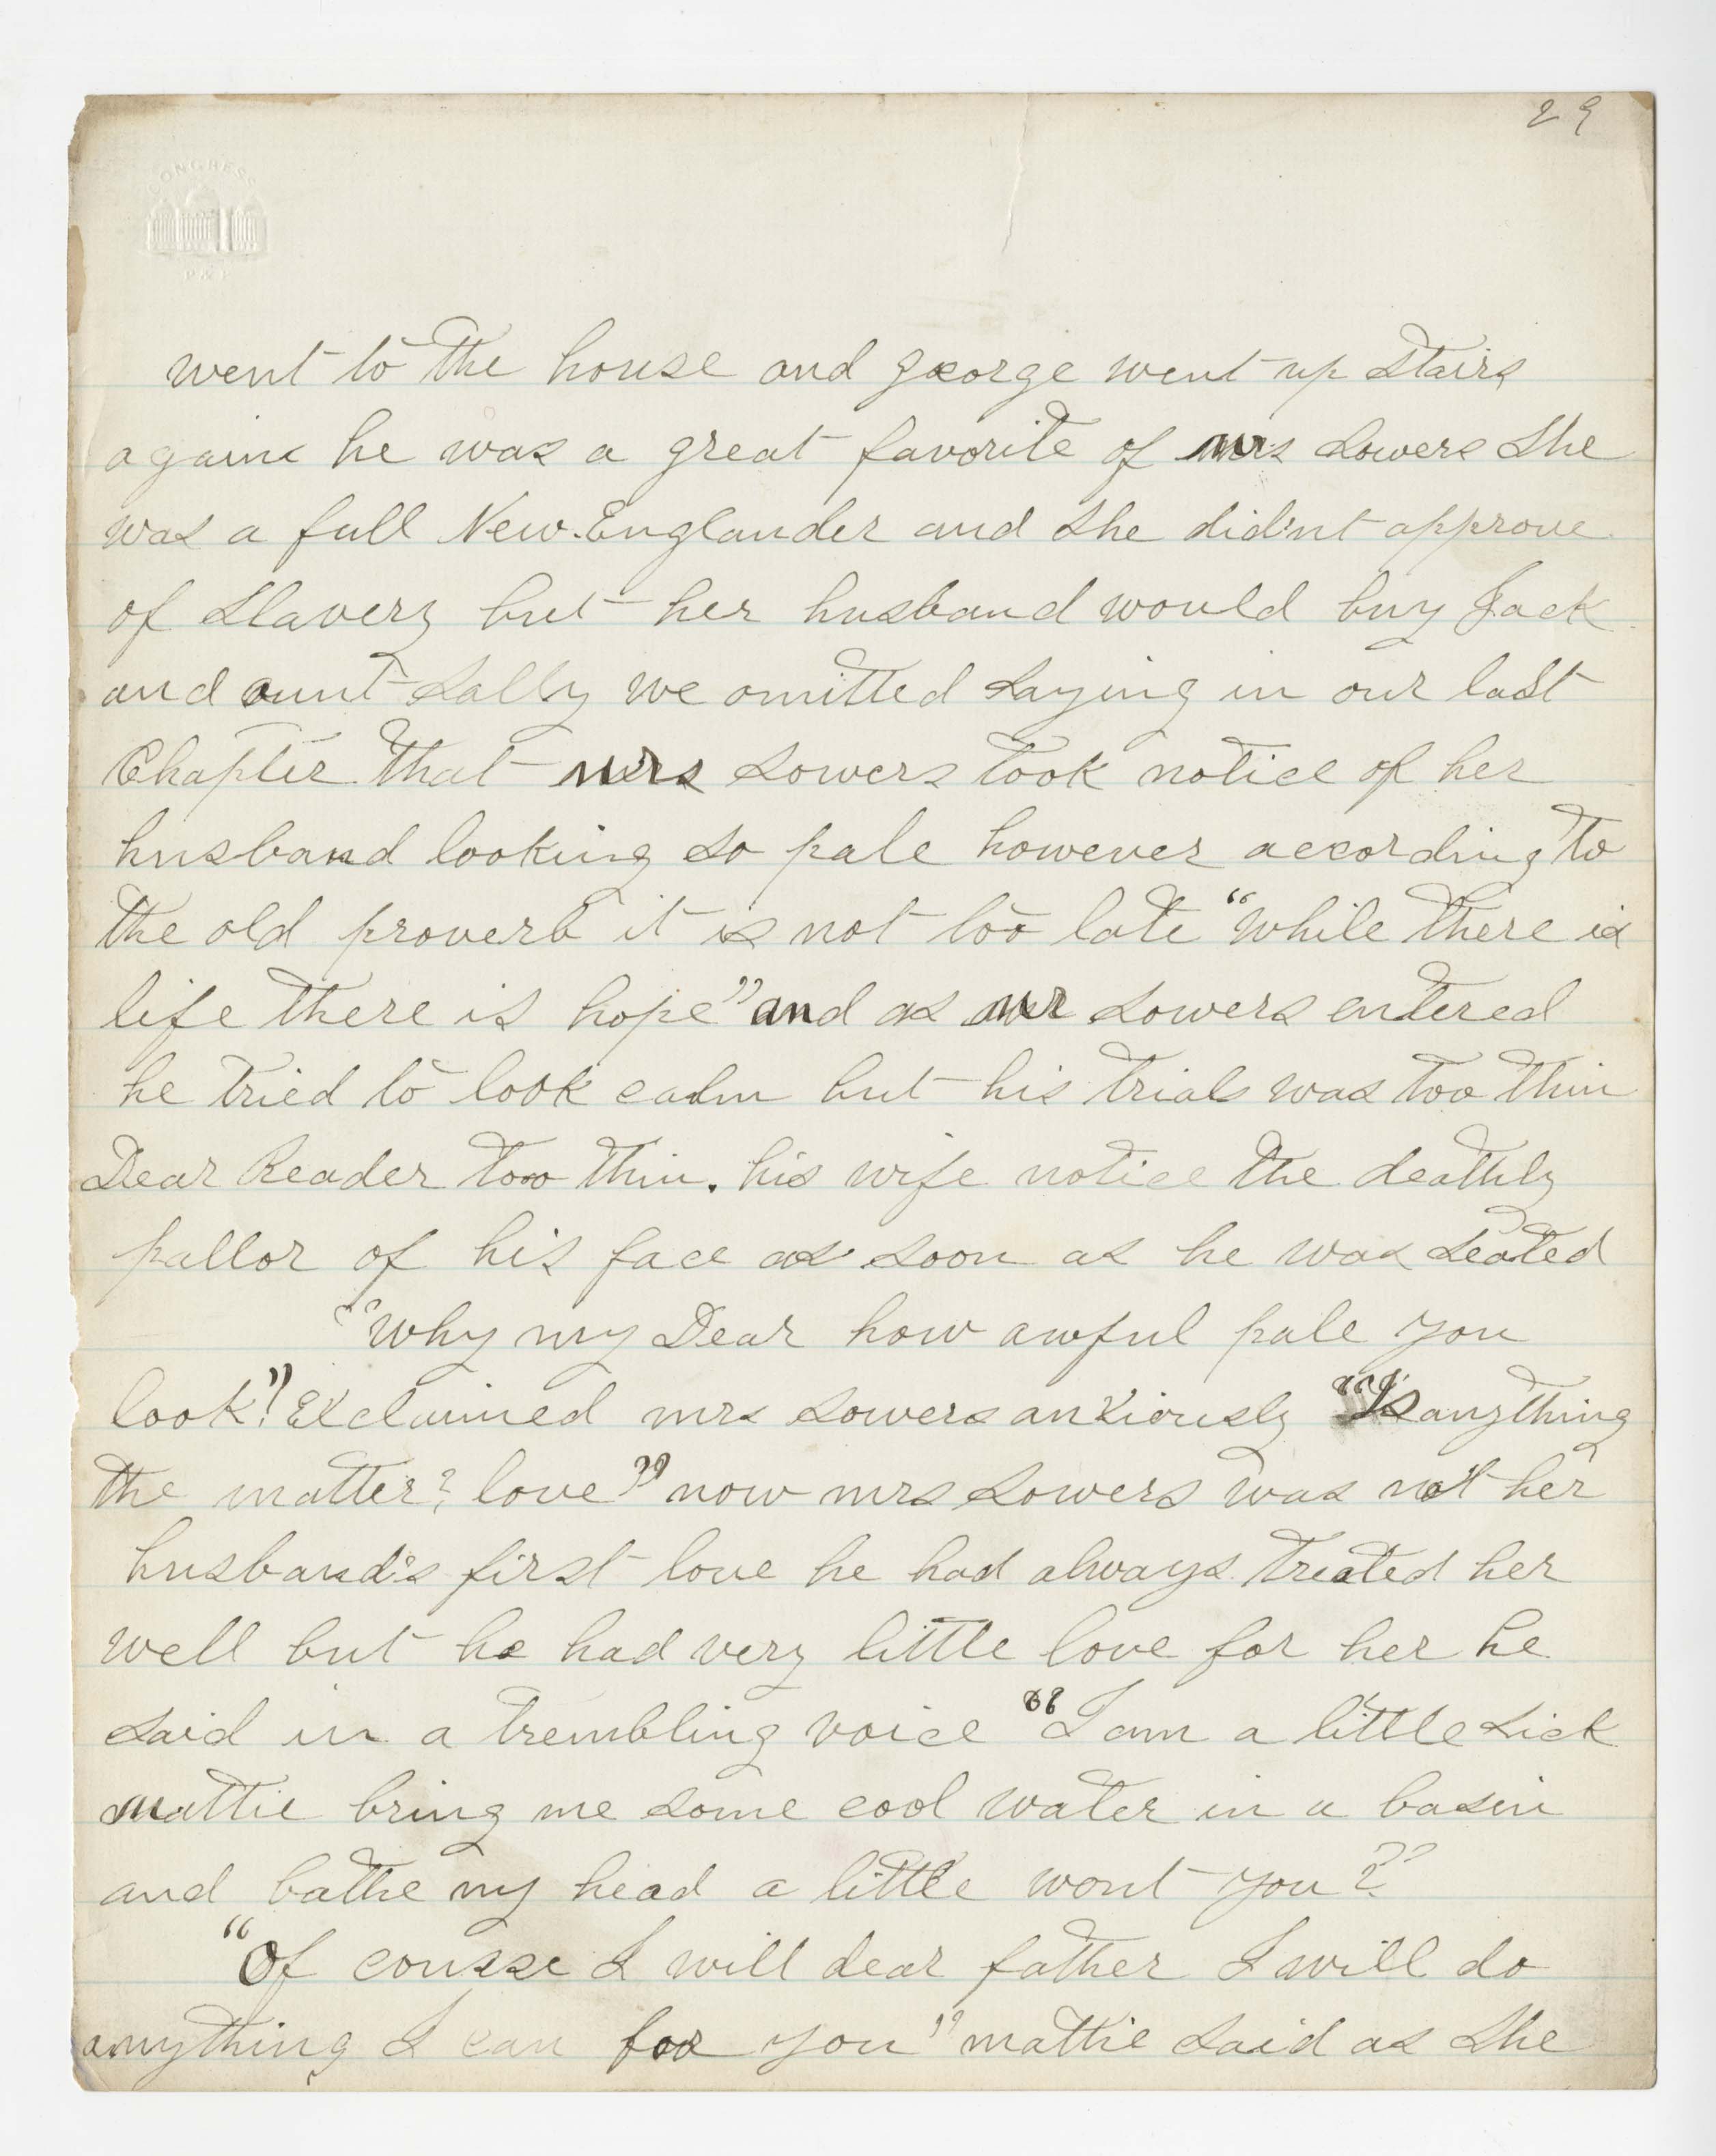 29
CONGRESS
P & P
went to the house and george went up stairs
againe he was a great favorite of mrs Sowers She
was a full New-Englander and she did'nt approve
of Slavery but her husband would buy Jack
and aunt Sally we omitted saying in our last
Chapter that mrs Sowers took notice of her
husband looking so pale however according to
the old proverb it is not too late "while there is
life there is hope" and as mr Sowers entered
he tried to look calm but his trials was too thin
Dear Reader too thin. his wife notice the deathly
pallor of his face as soon as he was seated
"why my Dear how awful pale you
look"! Exclaimed mrs Sowers anxiously "Is anything
the matter? love" now mrs Sowers was not her
husband's first love he had always treated her
well but he had very little love for her he
said in a trembling voice "I am a little sick
mattie bring me some cool water in a basin
and bathe my head a little wont you?"
"Of course I will dear father I will do
anything I can for you" mattie said as she